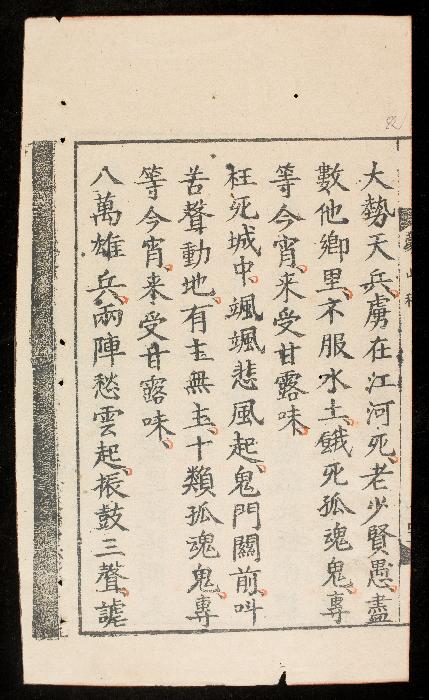 大勢天兵虜在江河死老少賢愚盡
數他鄉里不服水土餓死孤魂鬼專
等今宵來受甘露味
枉死城中颯颯悲風起鬼門關前叫
苦聲動地有主無主十類孤魂鬼專
等今宵來受甘露味
八萬雄兵兩陣愁雲起振鼓三聲諕